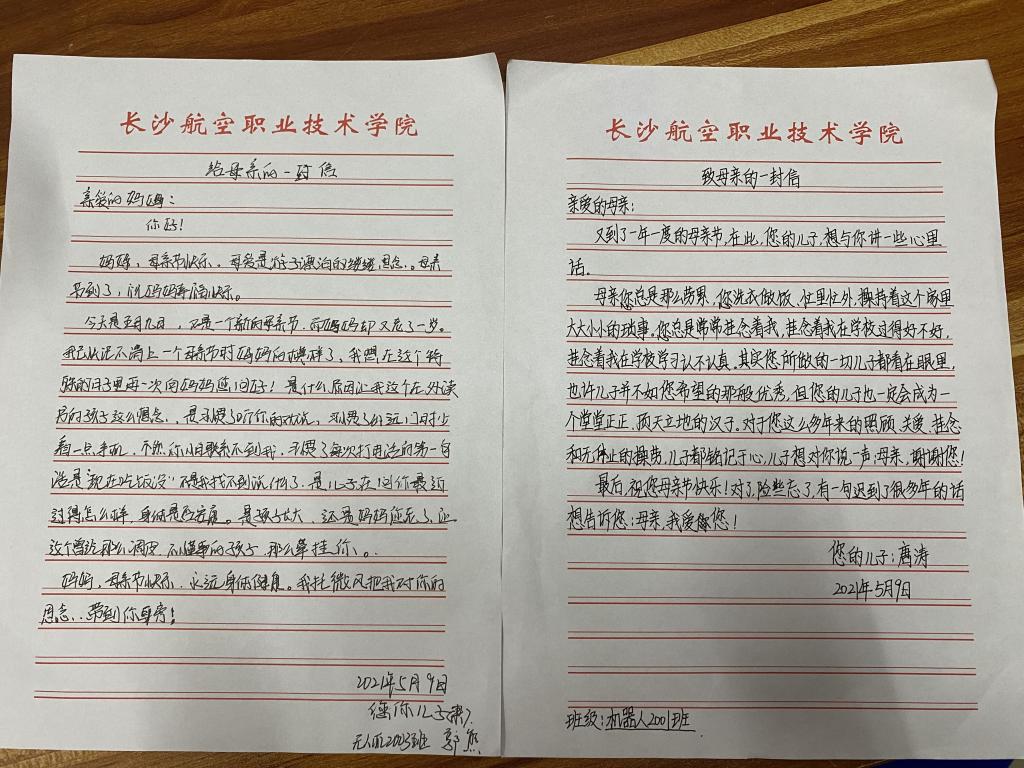 长沙航空职业技术学院
给母亲的一封信
亲爱的妈妈：
你好！
妈妈，母亲节快乐。母爱是游子漂泊的缕缕思念。母亲
节到了，祝妈妈节日快乐。
今天是五月九日，又是一个新的母亲节，而妈妈却又老了一岁。
我已认记不清上一个母亲节时妈妈的模样了，我想在这个特
殊的日子里再一次向妈妈您问好！是什么原因让我这个在外读
书的孩子这么想念，是习惯了听你的
看一点手机，不然
习惯了每次打电话的第一句
是儿子在问你最近
过得怎么样，身体是否安康。是孩子长大，还是妈妈您老了，让
这个曾经那么调皮、不懂事的孩子，那么牵挂你。
妈妈，母亲节快乐，永远身体健康。我托微风把我对你的
思念，带到你身旁！
2021年5月9日
您的儿子
无人机2003班 郭
长沙航空职业技术学院
致母亲的一封信
亲爱的母亲：
又到了一年一度的母亲节，在此，您的儿子，想与你讲一些心里
话。
母亲您总是那么劳累，您洗衣做饭，忙里忙外，操持着这个家里
大大小小的琐事。您总是常常挂念着我，挂念着我在学校过得好不好，
挂念着我在学校学习认不认真。其实您所做的一切儿子都看在眼里，
也许儿子并不如您希望的那般优秀，但您的儿子也一定会成为一
个堂堂正正，顶天立地的汉子。对于您这么多年来的照顾、关爱、挂念
和无休止的操劳，儿子都铭记于心，儿子想对你说一声：母亲，谢谢您！
最后，祝您母亲节快乐！对了，险些忘了，有一句迟到了很多年的话
想告诉您：母亲，我爱您！
您的儿子：唐涛
2021年5月9日
班级：机器人2001班